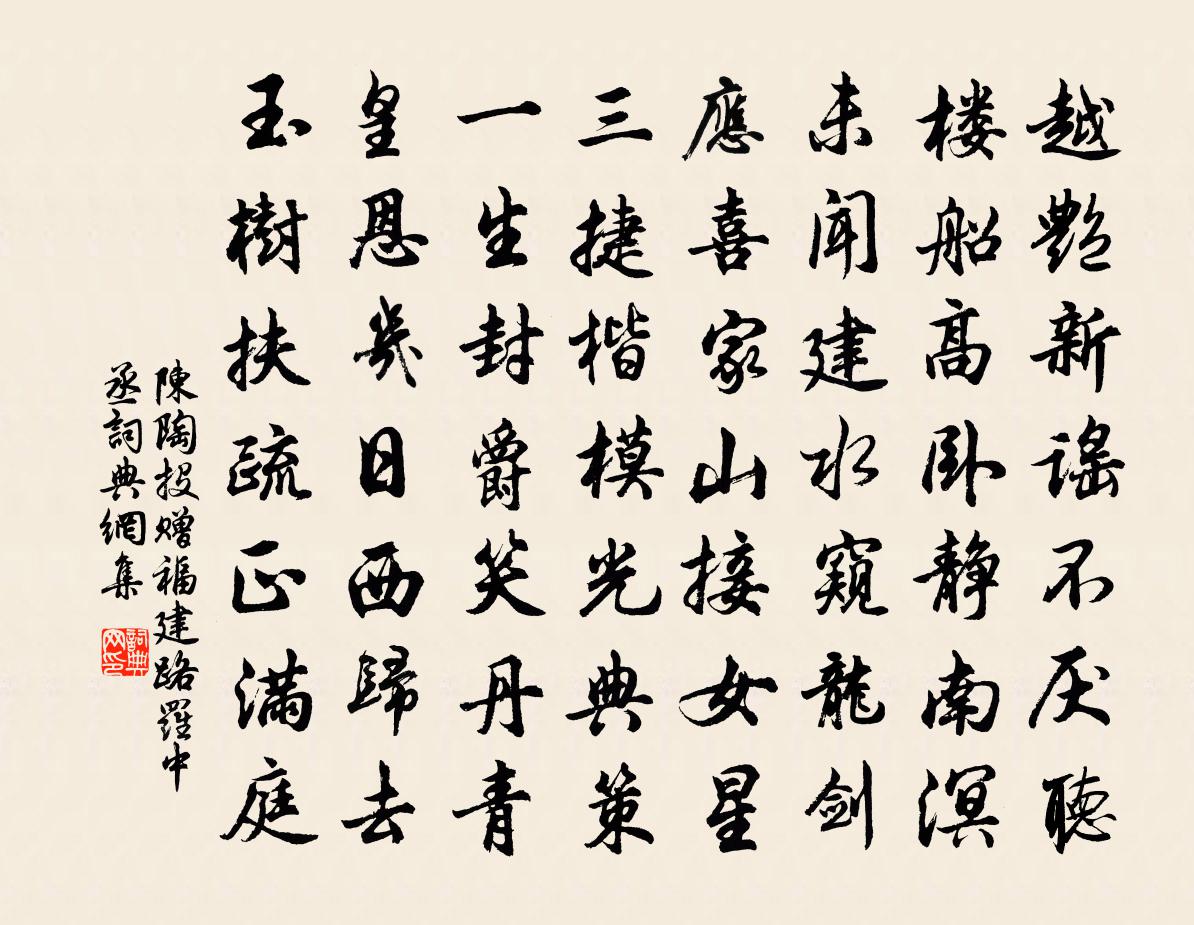 越艷新謠不厌聽
楼船高卧静南溟
未聞建水窺龍剑
應喜家山接女星
三捷楷模光典策
一生封爵笑丹青
皇恩幾日西歸去
玉樹扶疏正滿庭
陳陶投赠福建路羅中
丞詞典網集
詞典网印